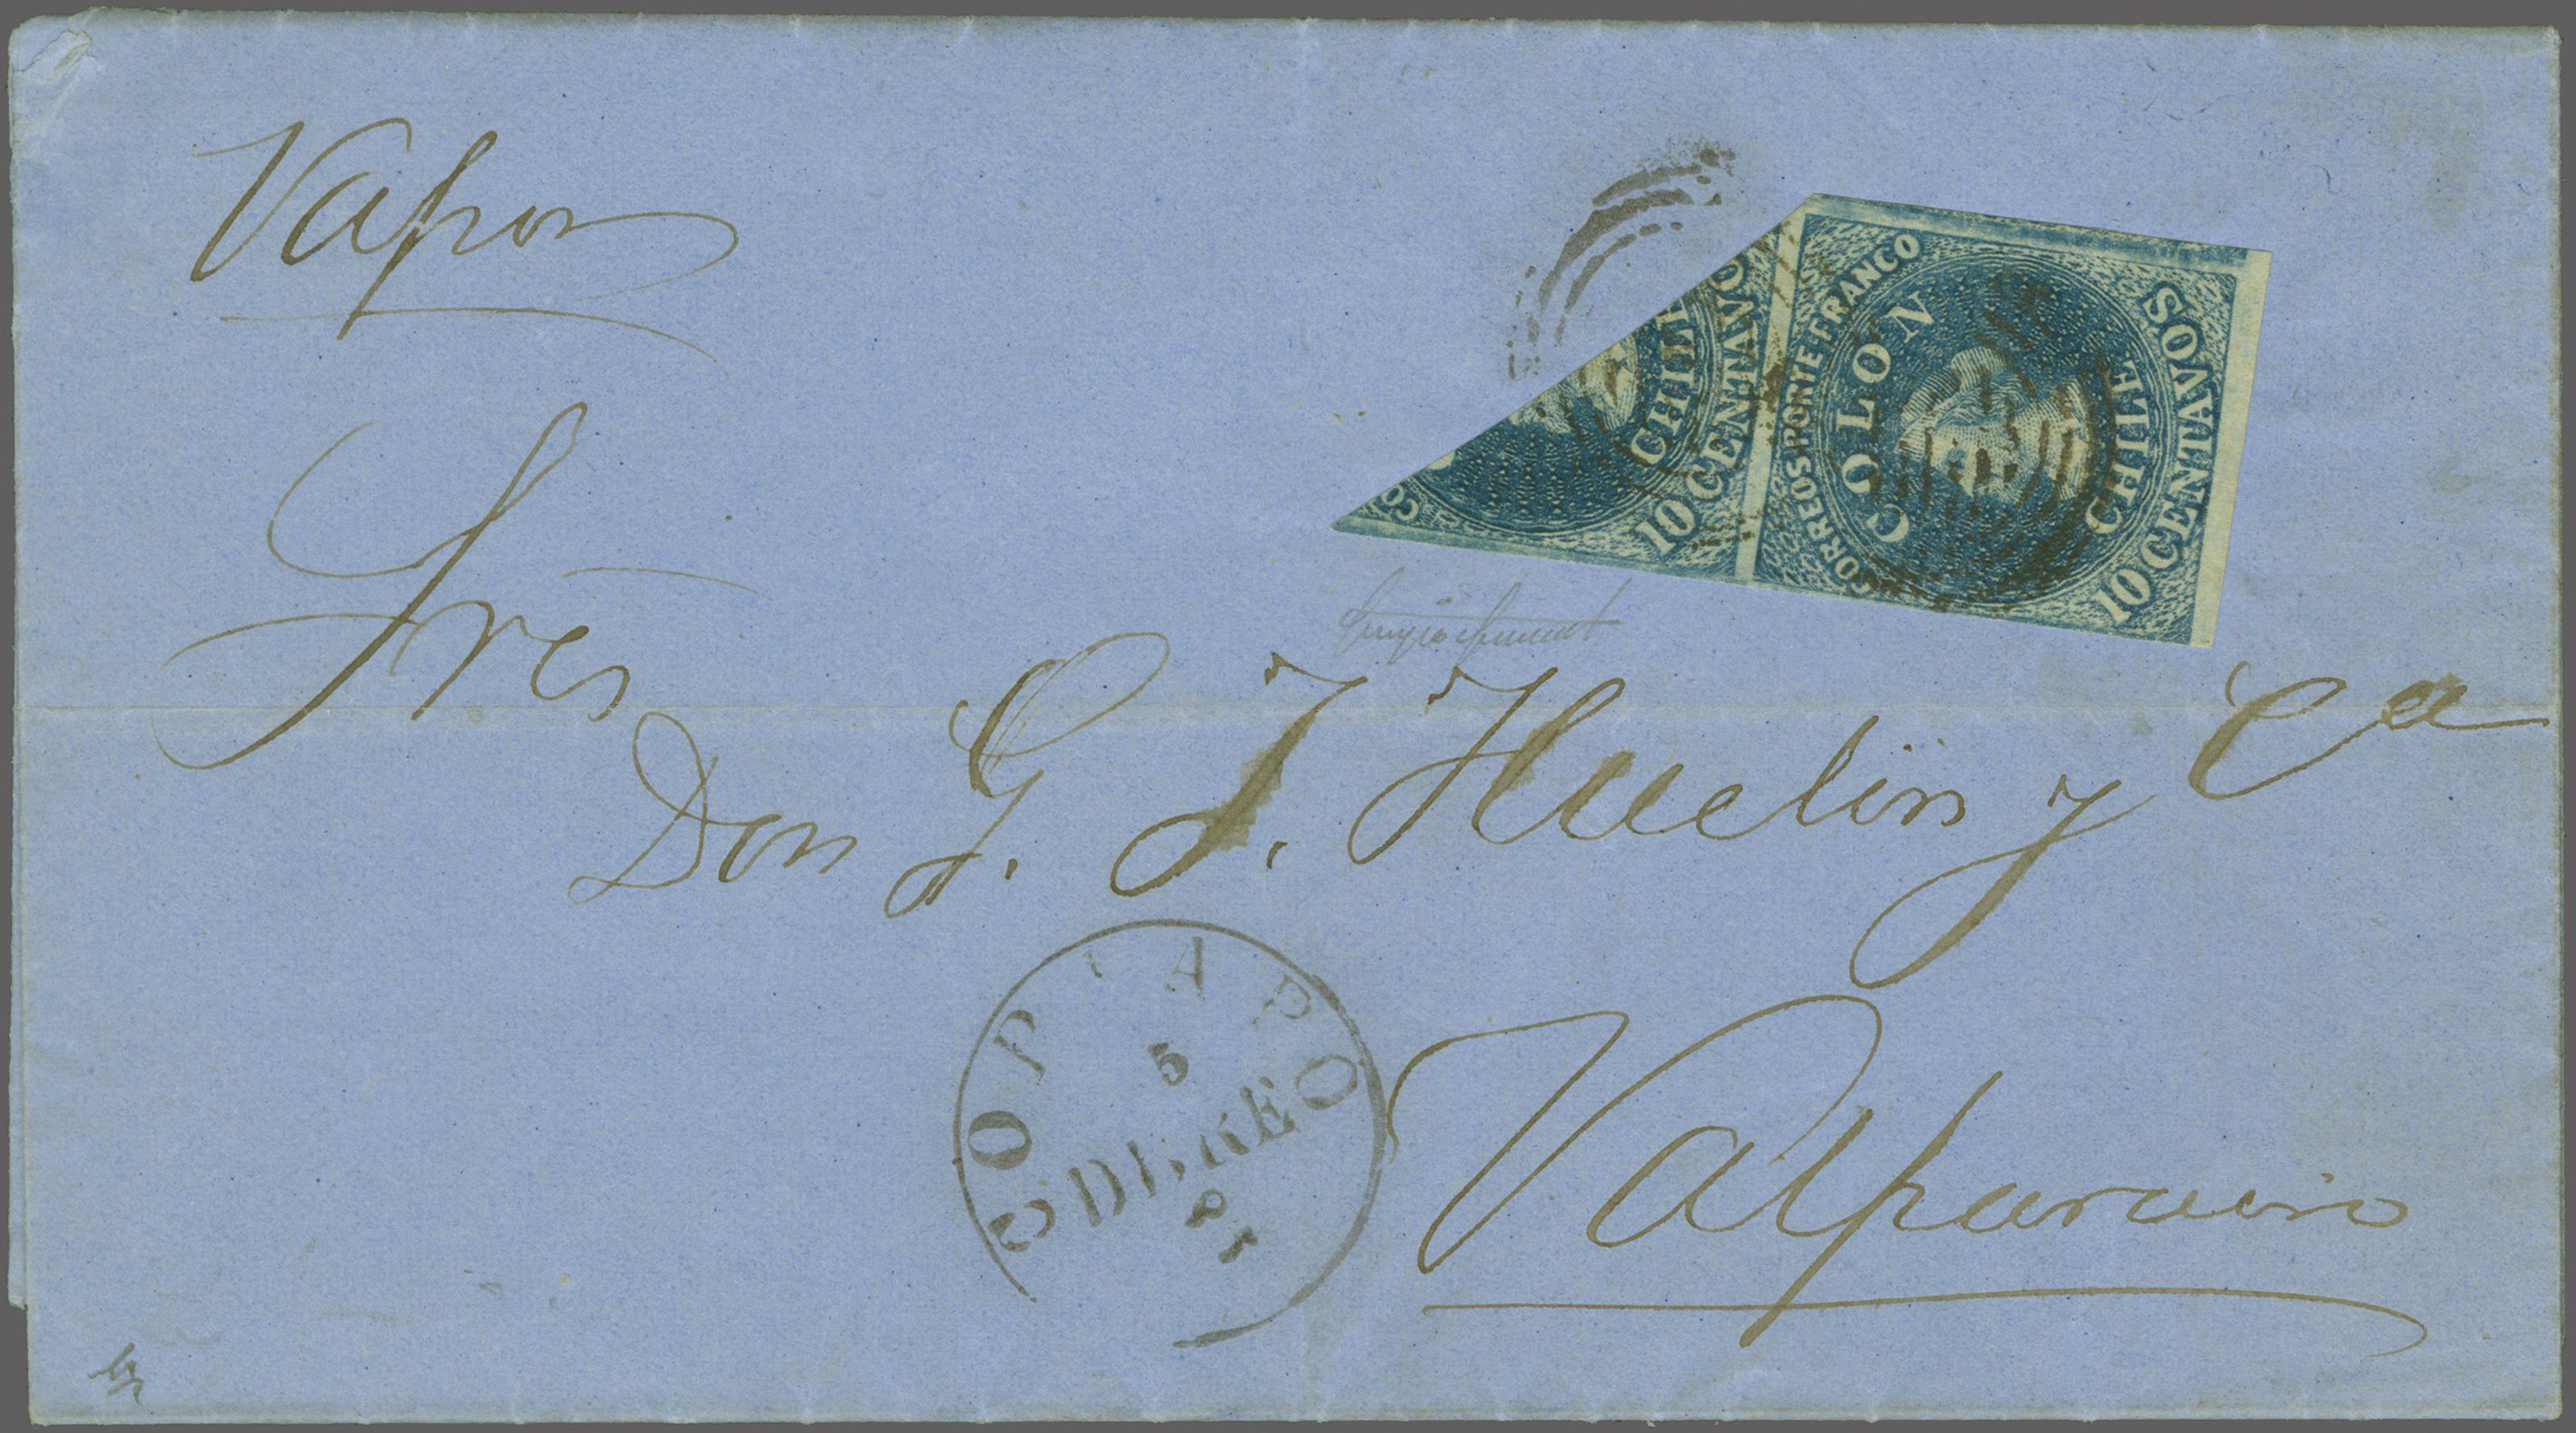 Vapor
CHILE
10 CENTAVO
CO
CORREOS PORTE FRANCO
COLON
CHILE
10 CENTAVOS
Sres
Don G. J. Huelin y Ca
COPIAPO
5
ENERO
Valparaiso